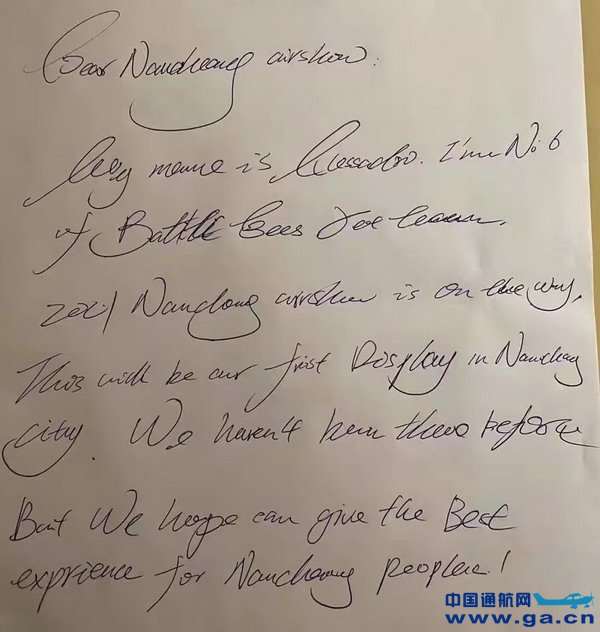 Dear Nanchang airshow:
My name is . I'm No: 6
of Battle Bees Jet team.
2021 Nanchang airshow is on the way,
This will be our first Display in Nanchang
city. We haven't been there before
But We hope can give the Best
exprience for Nanchang people!
中国通航网
www.ga.cn